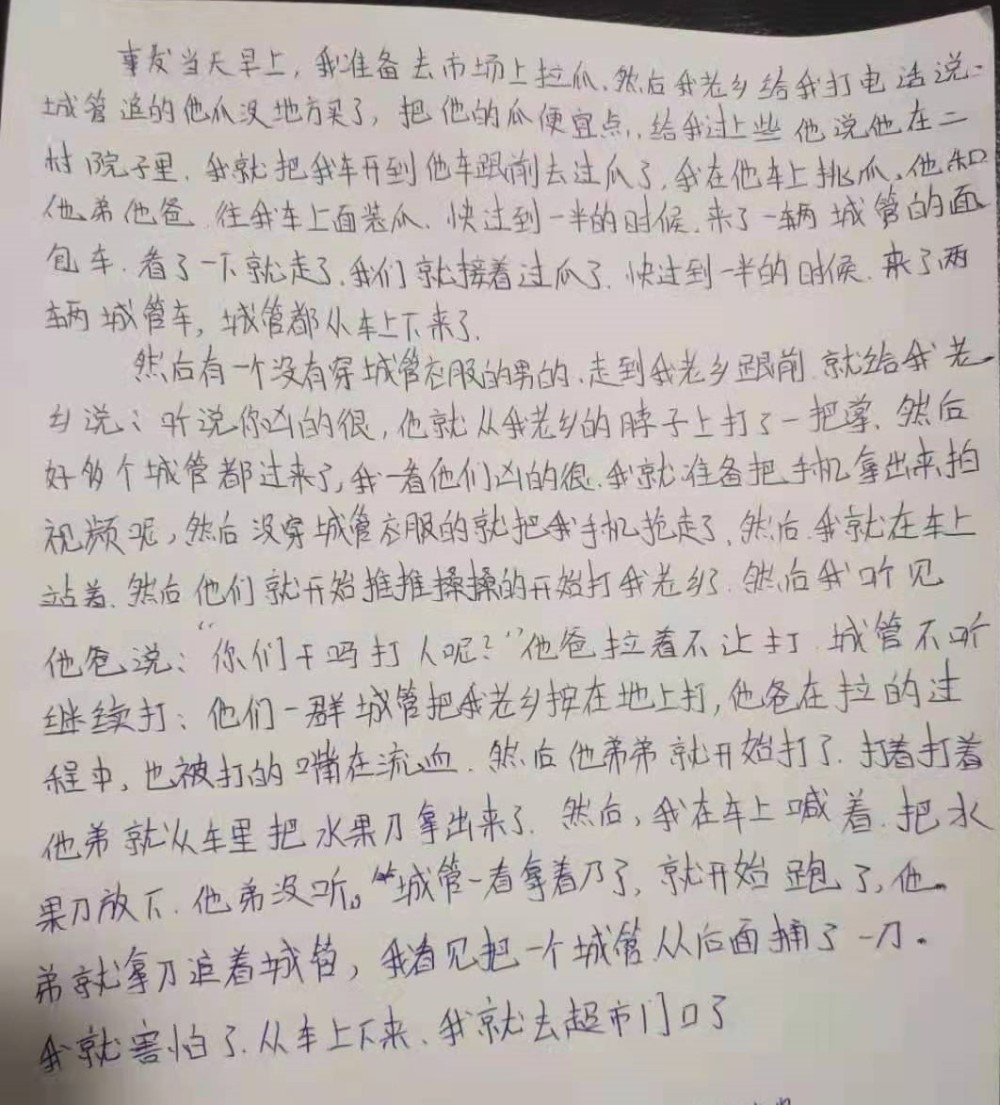 事发当天早上，我准备去市场上拉瓜，然后我老乡给我打电话说.
城管追的他瓜没地方买了，把他的瓜便宜点，给我过上些他说他在二
村院子里，我就把我车开到他车跟前去过瓜了，我在他车上挑瓜，他和
他弟他爸往我车上面装瓜，快过到一半的时候，来了一辆城管的面
包车，看了一下就走了，我们就接着过瓜了，快过到一半的时候，来了两
辆城管车，城管都从车上下来了.
然后有一个没有穿城管衣服的男的，走到我老乡跟前就给我老
乡说：听说你凶的很，他就从我老乡的脖子上打了一把掌，然后
好多个城管都过来了，我一看他们凶的很，我就准备把手机拿出来拍
视频呢，然后没穿城管衣服的就把我手机抢走了，然后我就在车上
站着，然后他们就开始推推搡搡的开始打我老乡了，然后我听见
他爸说：“你们干吗打人呢？”他爸拉着不让打，城管不听
继续打；他们一群城管把我老乡按在地上打，他爸在拉的过
程中，也被打的嘴在流血，然后他弟弟就开始打了，打着打着
他弟就从车里把水果刀拿出来了，然后，我在车上喊着，把水
果刀放下，他弟没听。城管一看拿着刀了，就开始跑了，他
弟就拿刀追着城管，我看见把一个城管从后面捅了一刀。
我就害怕了，从车上下来，我就去超市门口了